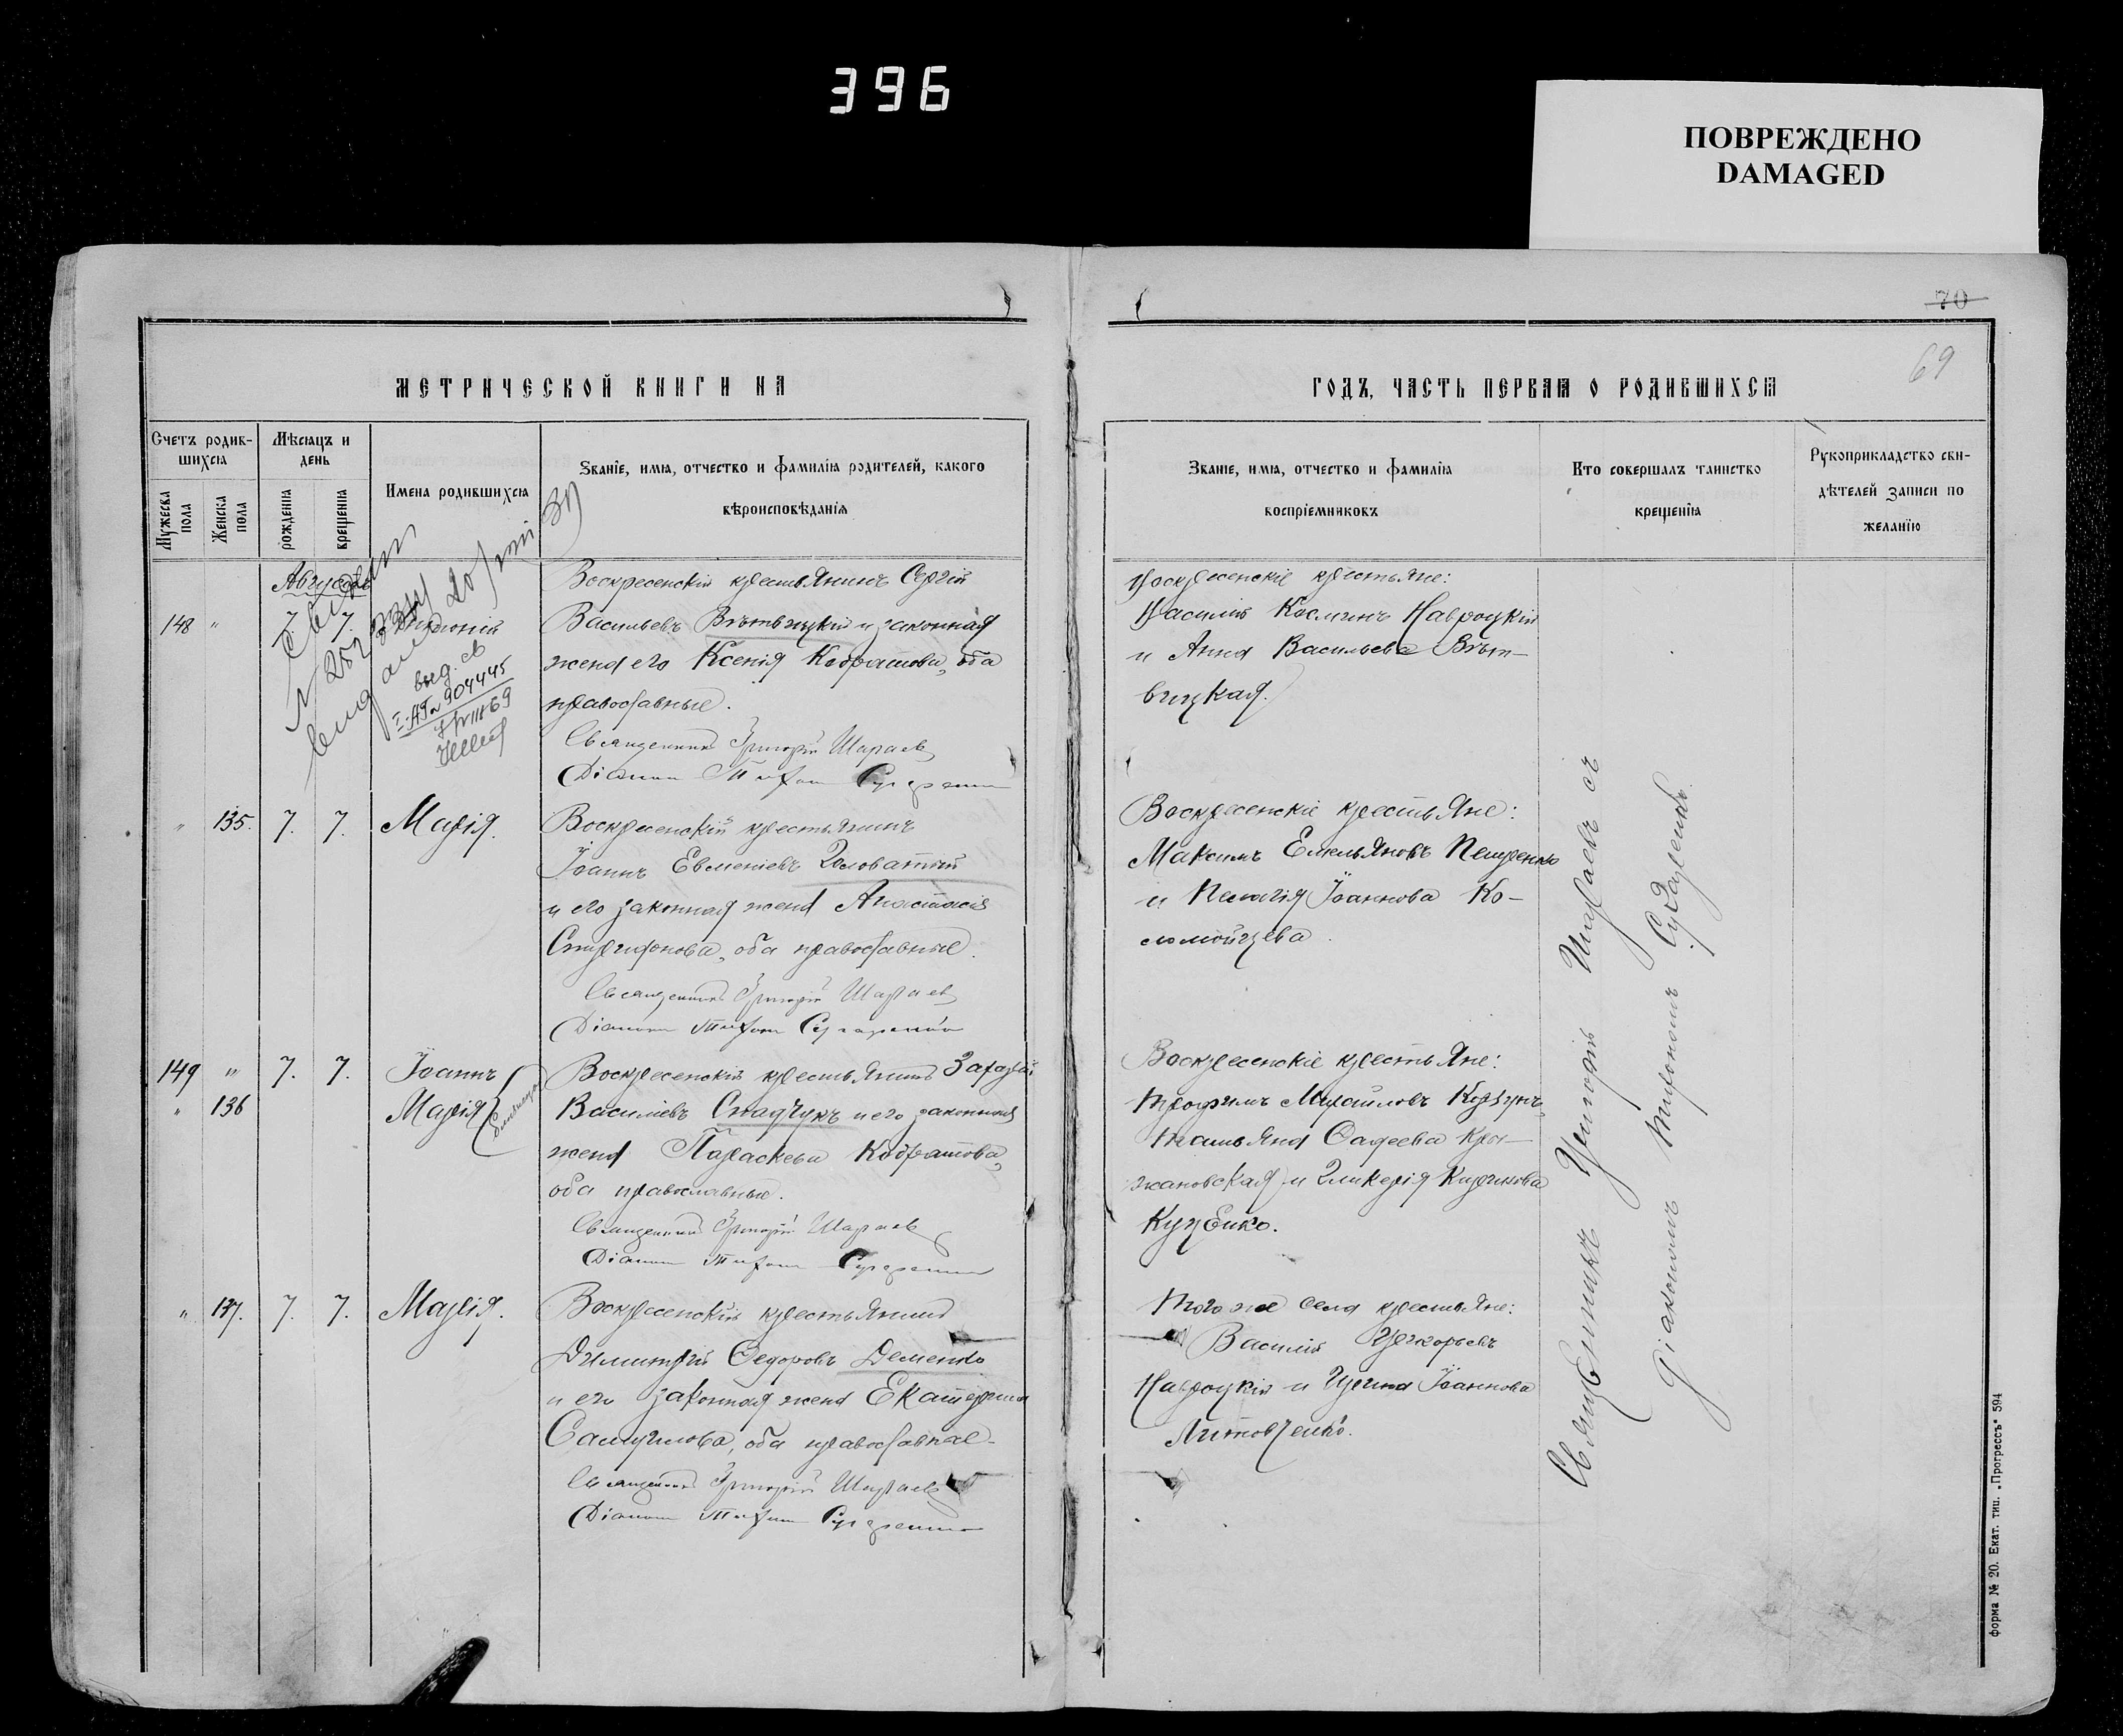 396
ПОВРЕЖДЕНО
DAMAGED
70
69
МЕТРИЧЕСКОЙ КНИГИ НА
ГОДЪ, ЧАСТЬ ПЕРВАЯ О РОДИВШИХСЯ
Счетъ родившихся
Мужеска пола
Женска пола
Мѣсяцъ и день
рожденія
крещенія
Имена родившихся
Званіе, имя, отчество и фамилія родителей, какого вѣроисповѣданія
Званіе, имя, отчество и фамилія воспріемниковъ
Кто совершалъ таинство крещенія
Рукоприкладство свидѣтелей записи по желанію
Августъ
148 " 7. 7.
выд. св
904445
Воскресенскій крестьянинъ Сергій
Васильевъ Вѣтвицкій и законная
жена его Ксенія Кодратова, оба
православные.
Священникъ Григорій Шараевъ
Діаконъ Тихонъ
Воскресенскіе крестьяне:
Василій Косминъ Навроцкій
и Анна Васильева Вѣт-
вицкая.
" 135. 7. 7. Марія.
Воскресенскій крестьянинъ
Іоаннъ Евменіевъ Головатый
и его законная жена Анастасія
Спиридонова, оба православные.
Священникъ Григорій Шараевъ
Діаконъ Тихонъ
Воскресенскіе крестьяне:
Максимъ Емельяновъ Пещренко
и Пелагія Іоаннова Ко-
ломойцева.
149 " 7. 7. Іоаннъ
" 136 Марія
близнецы
Воскресенскій крестьянинъ Захарій
Василіевъ Спадчукъ и его законная
жена Параскева Кодратова,
оба православные.
Священникъ Григорій Шараевъ
Діаконъ Тихонъ
Воскресенскіе крестьяне:
Трофимъ Михаиловъ
Татьяна Фадеева Кры-
жановская и Гликерія Кирикова
Куценко.
" 137. 7. 7. Марія.
Воскресенскій крестьянинъ
Димитрій Федоровъ Деменко
и его законная жена Екатерина
Самуилова, оба православные.
Священникъ Григорій Шараевъ
Діаконъ Тихонъ
Того же села крестьяне:
Василій Григорьевъ
Навроцкій и Ирина Іоаннова
Литовченко.
Священникъ Григорій Шараевъ съ
Діакономъ Тихономъ
форма № 20. Екат. тип. „Прогрессъ" 594